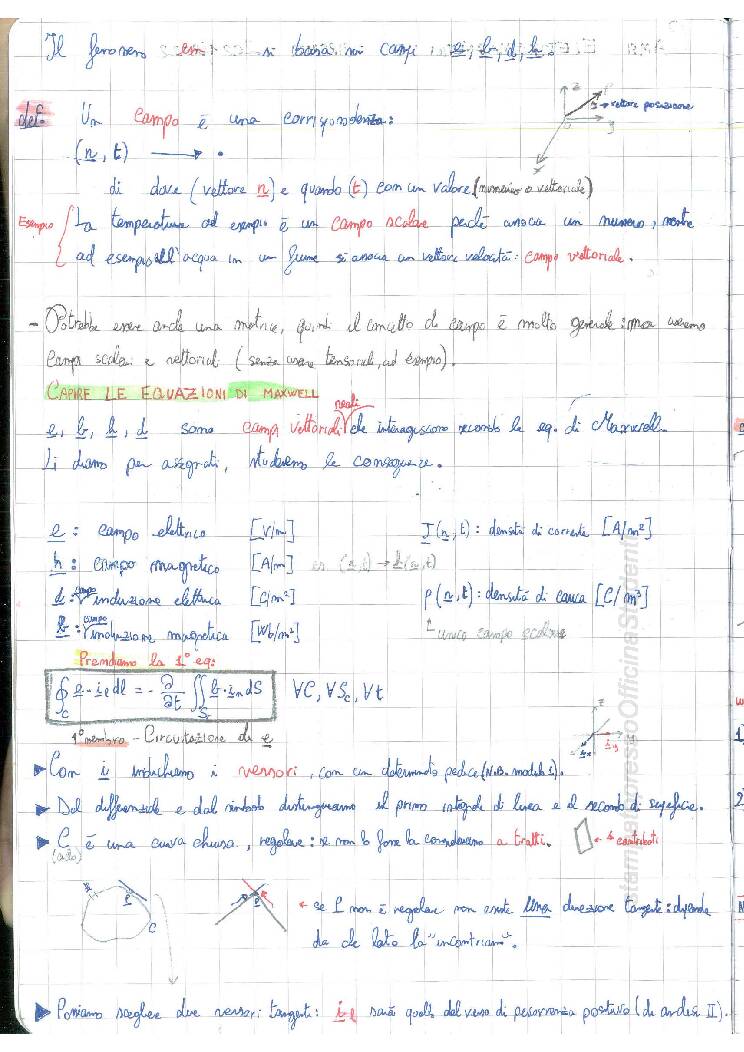 Il fenomeno em si basa sui campi e, b, d, h.
P
z
r → vettore posizione
O
y
def. Un campo è una corrispondenza:
(r, t) ⟶ •
di dove (vettore r) e quando (t) con un valore (numerico o vettoriale)
Esempio La temperatura ad esempio è un campo scalare perché associa un numero, mentre
ad esempio all'acqua in un fiume si associa un vettore velocità: campo vettoriale.
- Potrebbe essere anche una matrice, quindi il concetto di campo è molto generale: noi useremo
campi scalari e vettoriali (senza usare tensoriali, ad esempio).
CAPIRE LE EQUAZIONI DI MAXWELL
reali
e, b, h, d sono campi vettoriali che interagiscono secondo le eq. di Maxwell.
Li diamo per assegnati, studieremo le conseguenze.
e: campo elettrico [V/m] J(r, t): densità di corrente [A/m²]
h: campo magnetico [A/m] es. (r,t) → h(r,t)
d: campo induzione elettrica [C/m²] ρ(r,t): densità di carica [C/m³]
b: campo induzione magnetica [Wb/m²] unico campo scalare
Prendiamo la 1° eq:
∮_C e · i_l dl = - ∂/∂t ∬_{S_C} b · i_n dS ∀C, ∀S_C, ∀t
1° membro - Circuitazione di e
z
y
► Con i indichiamo i versori, con un determinato pedice (N.B. modulo 1).
► Dal differenziale e dal simbolo distinguiamo il primo integrale di linea e il secondo di superficie.
► C è una curva chiusa, regolare: se non lo fosse la consideriamo a tratti. ← 4 contributi
P
C
P
← se P non è regolare non esiste una direzione tangente: dipende
da che lato la "incontriamo".
► Possiamo scegliere due versori tangenti: i_l sarà quello del verso di percorrenza positivo (da analisi II).
stampatopressoOfficinaStudenti